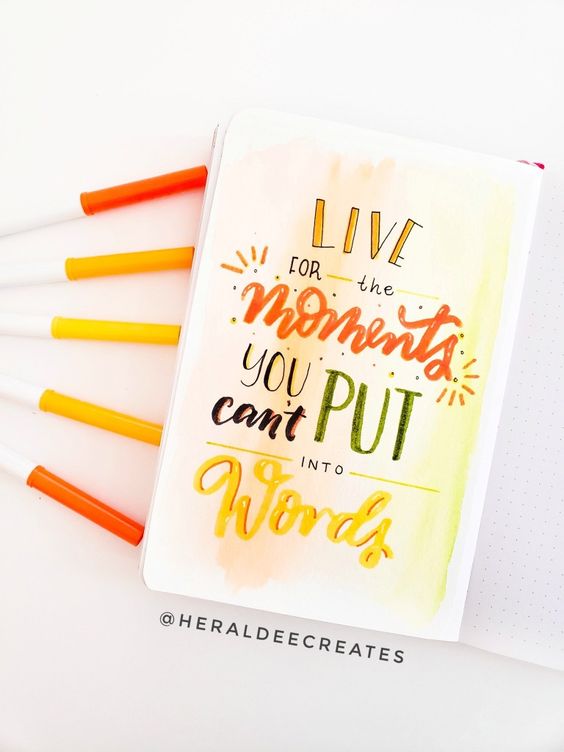 LIVE
FOR the
moments
YOU
can't PUT
INTO
Words
@HERALDEECREATES